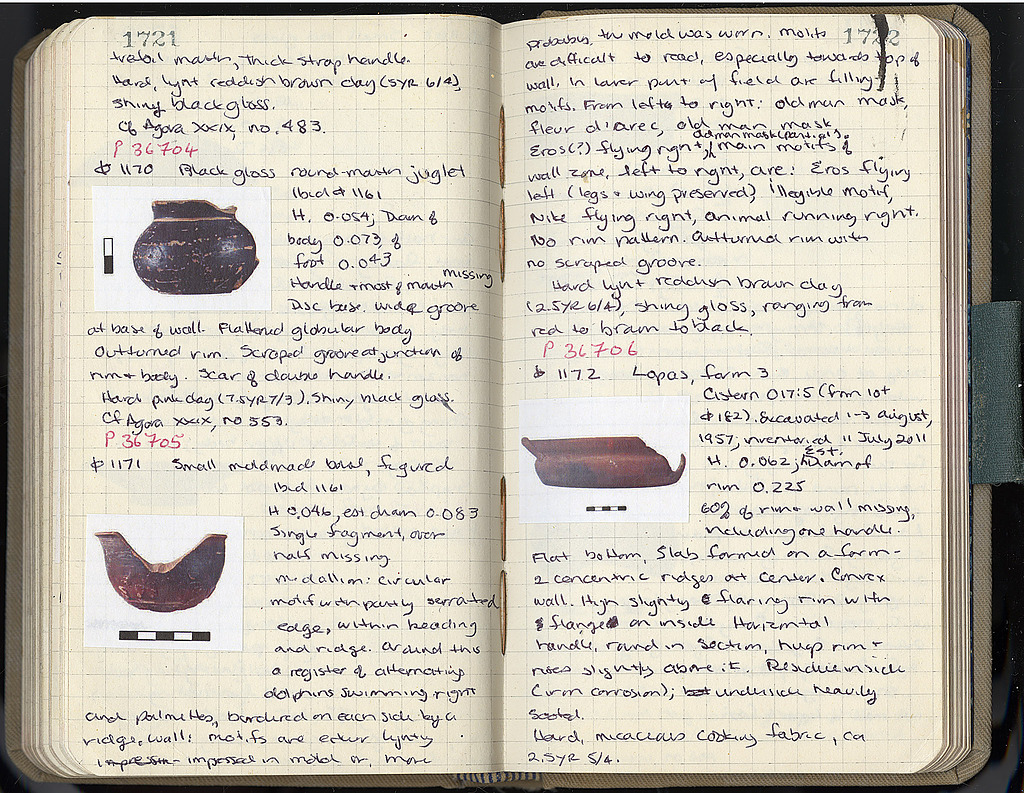 1721
trefoil mouth, thick strap handle.
Hard, lynt reddish brown clay (5YR 6/4)
shiny black gloss.
Cf Agora XXIX, no. 483.
P 36704
1170 Black gloss round-mouth juglet
Ibid # 1161
H. 0.054; Diam of
body 0.073, of
foot 0.043
Handle + most of mouth missing
Disc base. wide groove
at base of wall. Flattened globular body
Outturned rim. Scraped groove at junction of
rim + body. Scar of double handle.
Hard pink clay (7.5YR 7/3). Shiny black gloss.
Cf Agora XXIX, no 553.
P 36705
1171 Small moldmade bowl, figured
Ibid 1161
H 0.046, est diam 0.083
Single fragment, over
half missing
medallion: circular
motif with partly serrated
edge, within beading
and ridge. Around this
a register of alternating
dolphins swimming right
and palmettes, bordered on each side by a
ridge. Wall: motifs are either lightly
impressed in mold or, more
1722
probably, the mold was worn. motifs
are difficult to read, especially towards top of
wall. In lower part of field are filling
motifs. From left to right: old man mask,
fleur d'arec, old man mask
old man mask (partial).
Eros(?) flying right, main motifs of
wall zone, left to right, are: Eros flying
left (legs + wing preserved) illegible motif,
Nike flying right, animal running, right.
No rim pattern. Outturned rim with
no scraped groove.
Hard lynt reddish brown clay
(2.5YR 6/4), shiny gloss, ranging from
red to brown to black.
P 36706
1172 Lopas, form 3
Cistern O17:5 (from lot
182). Excavated 1-3 August,
1957; inventoried 11 July 2011
H. 0.062; Est. Diam of
rim 0.225
60% of rim + wall missing,
including one handle.
Flat bottom, slab formed on a form -
2 concentric ridges at center. Convex
wall. High slightly flaring rim with
flange on inside Horizontal
handle, round in section, hugs rim +
rises slightly above it. Residue inside
(iron corrosion); underside heavily
sooted.
Hard, micaceous cooking fabric, ca
2.5YR 5/4.